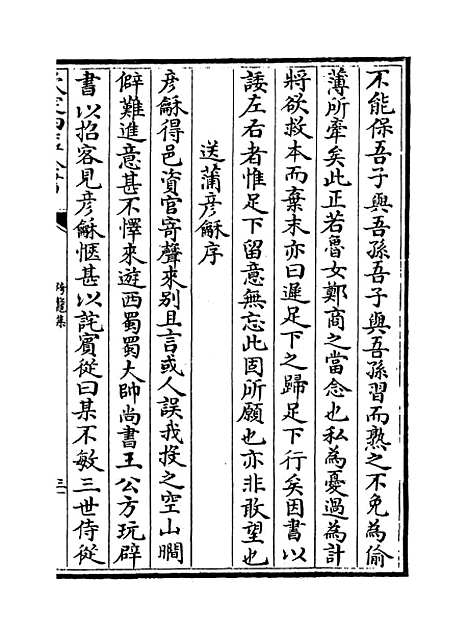 不能保吾子與吾孫吾子與吾孫習而熟之不免為偷
薄所牽矣此正若魯女鄭商之當念也私為憂過為計
將欲救本而棄末亦曰遲足下之歸足下行矣因書以
諉左右者惟足下留意無忘此固所願也亦非敢望也
送蒲彦龢序
彦龢得邑資官寄聲來别且言或人誤我投之空山閒
僻難進意甚不懌來遊西蜀蜀大帥尚書王公方玩辟
書以招客見彦龢愜甚以詫賓從曰某不敏三世侍從
跨鼇集
三